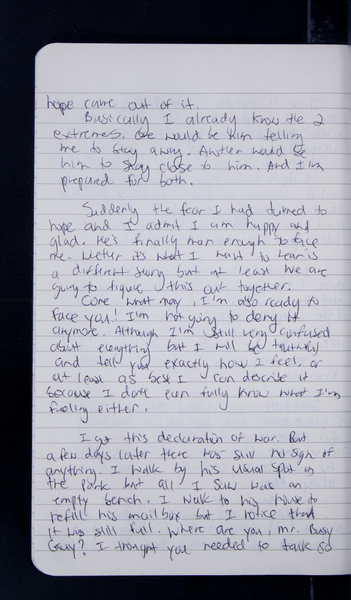 hope came out of it.
Basically I already know the 2
extremes. One would be him telling
me to stay away. Another would be
him to stay close to him. And I'm
prepared for both.
Suddenly the fear I had turned to
hope and I admit I am happy and
glad. He's finally man enough to face
me. Wether it's what I want to hear is
a different story but at least we are
going to figure this out together.
Come what may, I'm also ready to
face you! I'm not going to deny it
anymore. Although I'm still very confused
about everything but I will be truthful
and tell you exactly how I feel. or
at least as best I can describe it
because I don't even fully know what I'm
feeling either.
I got this declaration of war. But
a few days later there was still no sign of
anything. I walk by his usual spot in
the park but all I saw was an
empty bench. I walk to his house to
refill his mailbox but I notice that
it was still full. Where are you, Mr. Busy
Guy? I thought you needed to talk so